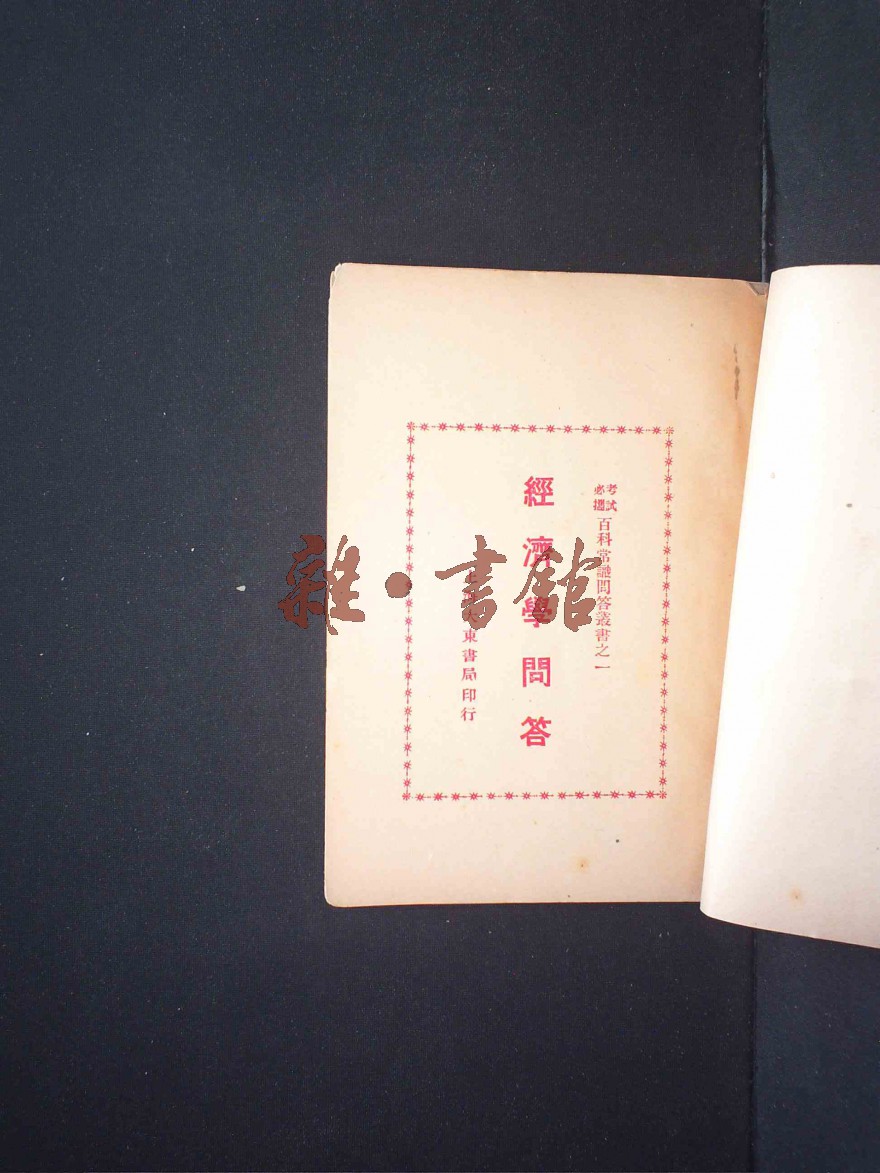 考試
必攜
百科常識問答叢書之一
經濟學問答
上海大東書局印行
雜·書館